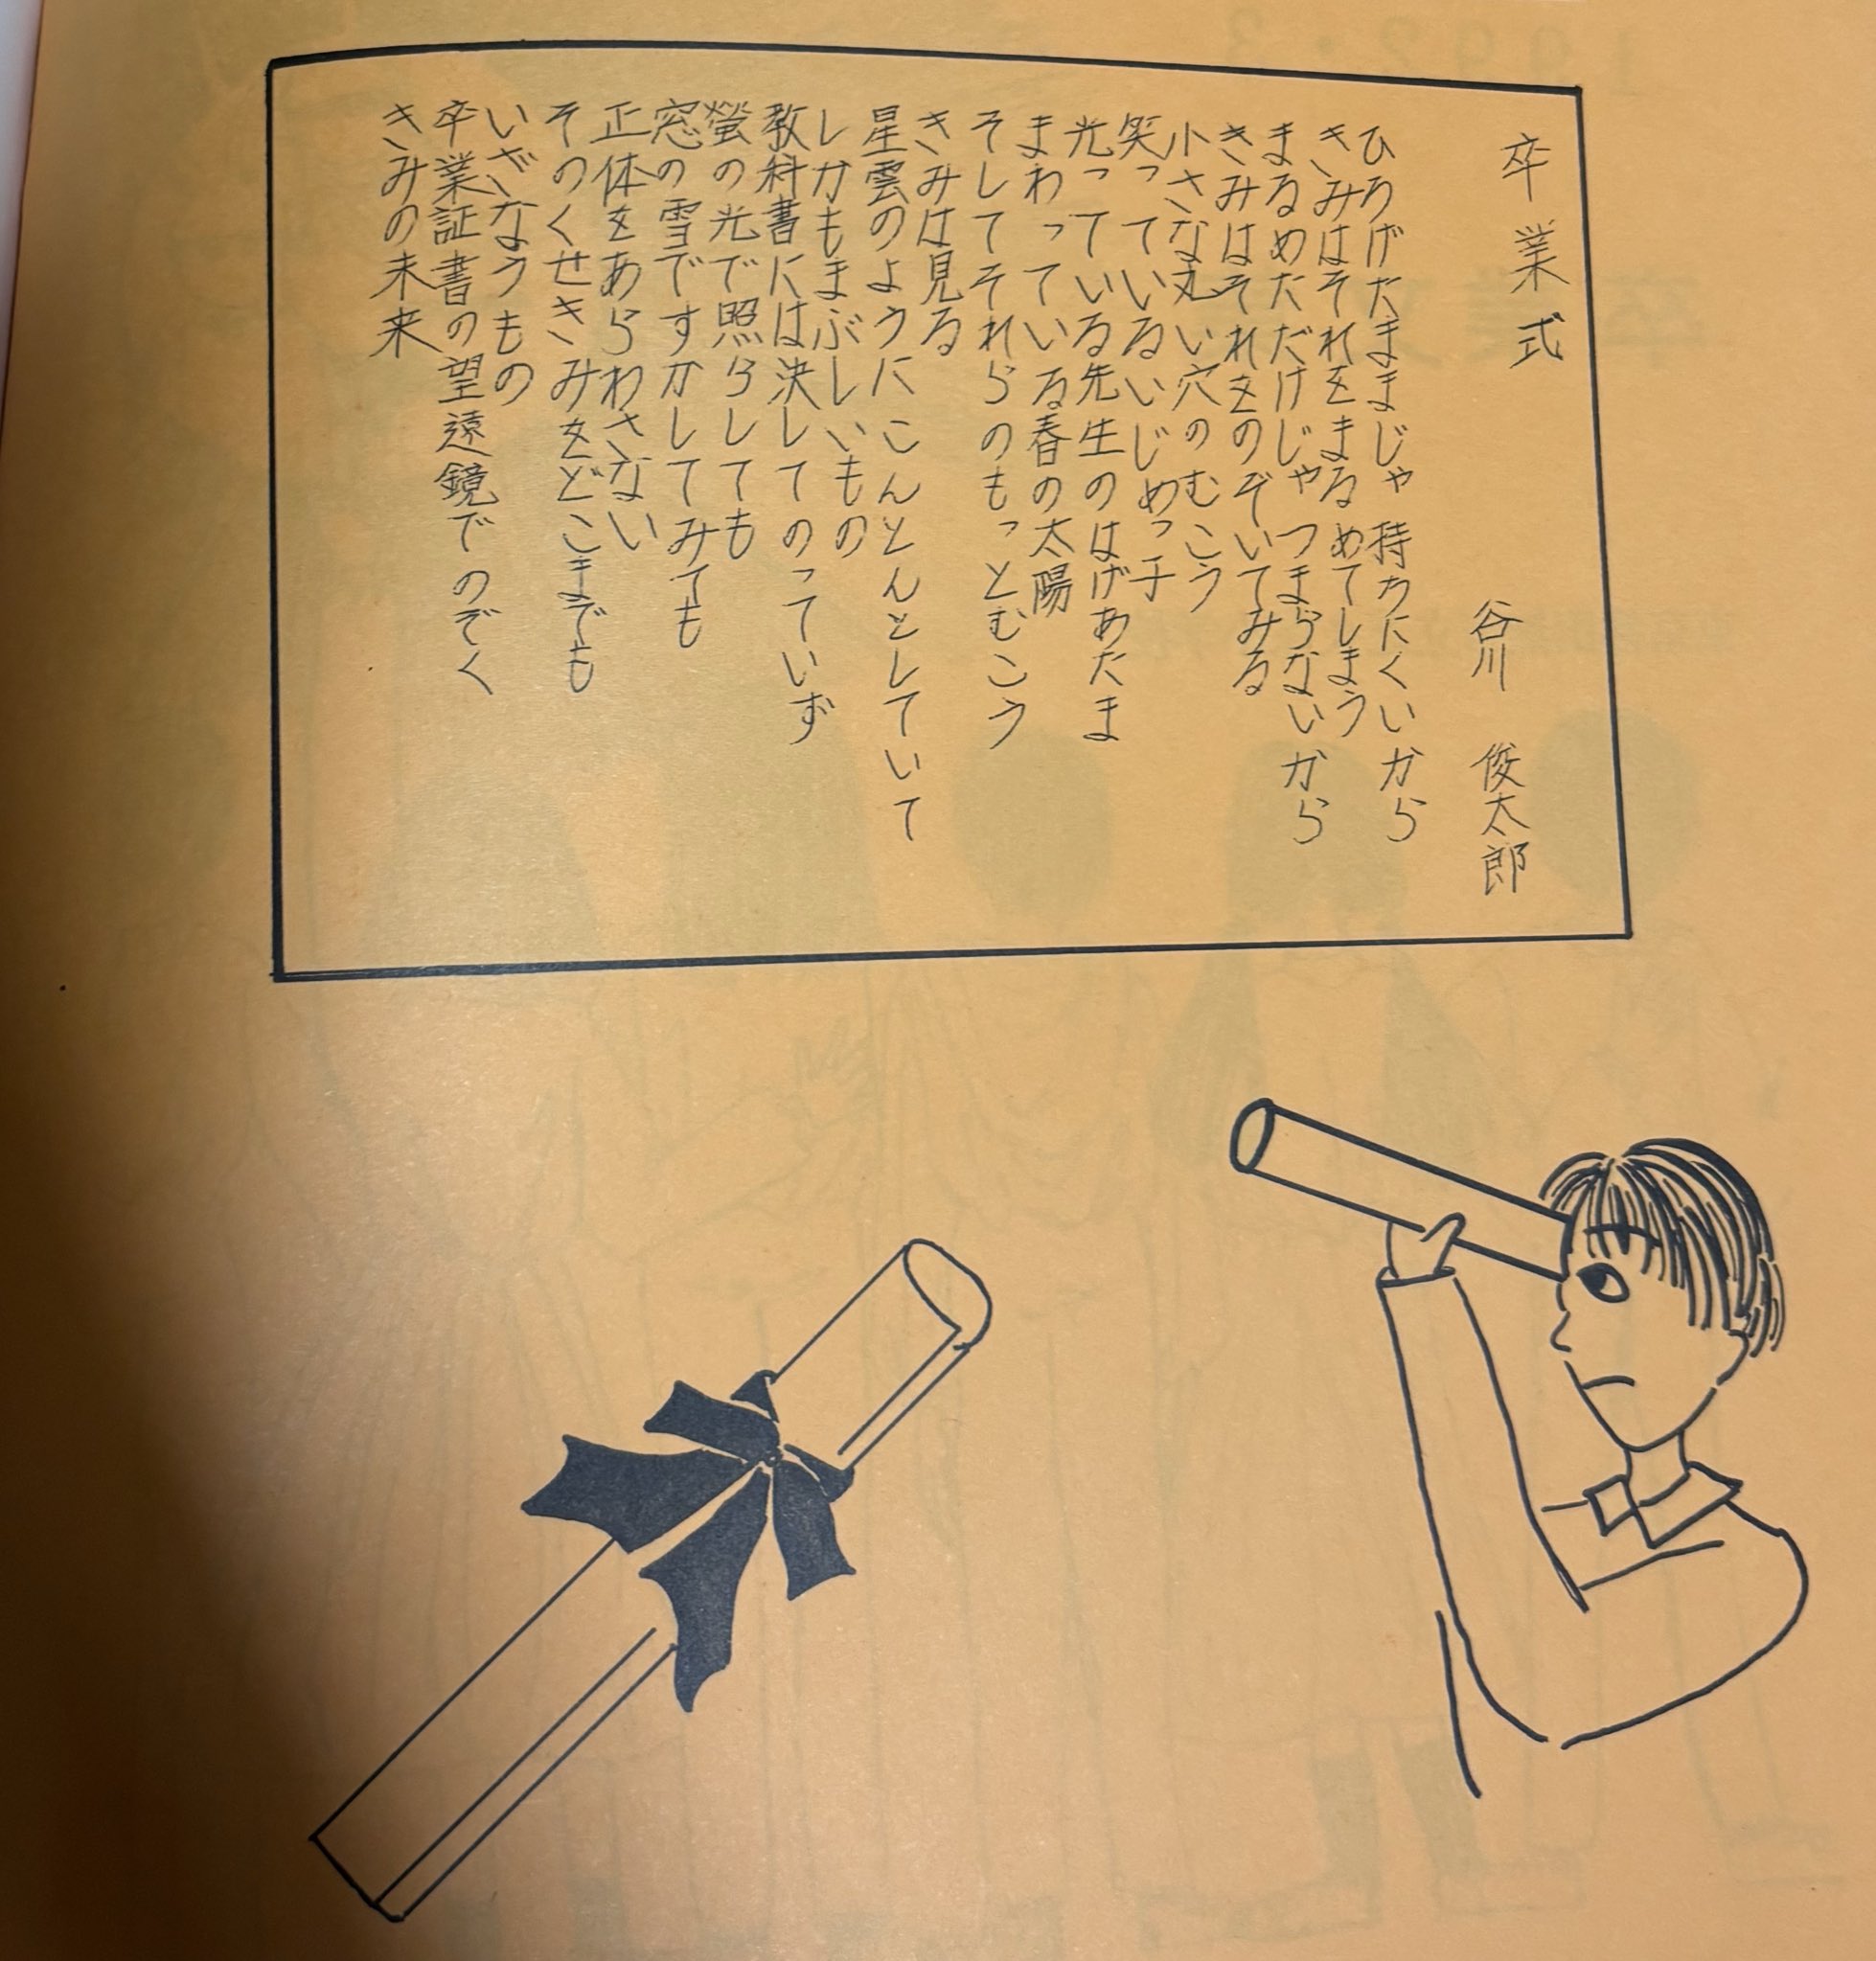 卒業式
谷川 俊太郎
ひろげたままじゃ持ちにくいから
きみはそれをまるめてしまう
まるめただけじゃつまらないから
きみはそれをのぞいてみる
小さな丸い穴のむこう
笑っているいじめっ子
光っている先生のはげあたま
まわっている春の太陽
そしてそれらのもっとむこう
きみは見る
星雲のようにこんとんとしていて
しかもまぶしいもの
教科書には決してのっていず
螢の光で照らしても
窓の雪ですかしてみても
正体をあらわさない
そのくせきみをどこまでも
いざなうもの
卒業証書の望遠鏡でのぞく
きみの未来
1992.3